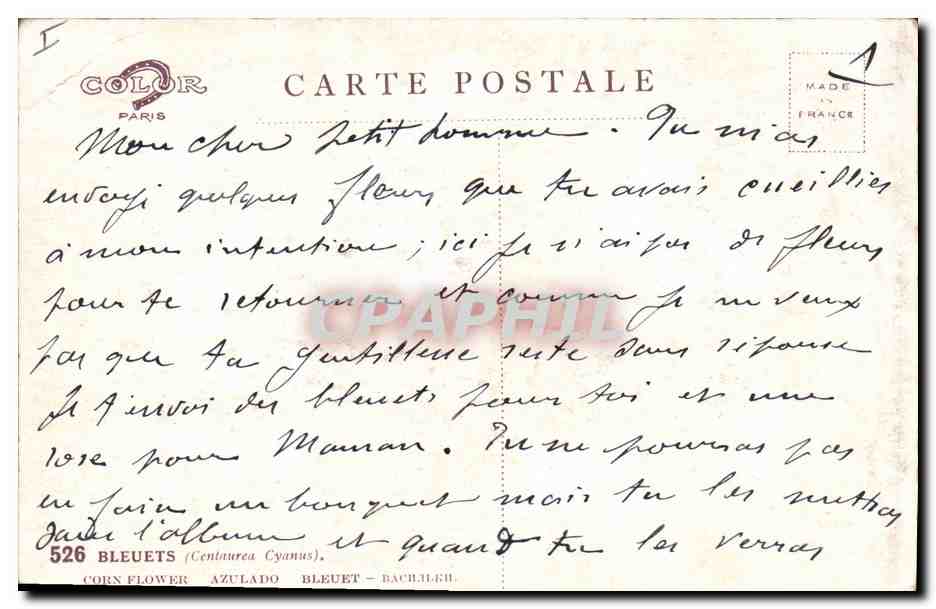 I
1
COLOR
PARIS
CARTE POSTALE
MADE
IN
FRANCE
Mon cher petit homme. Tu m'as
envoyé quelques fleurs que tu avais cueillies
à mon intention ; ici je n'ai pas de fleurs
pour te retourner et comme je ne veux
pas que ta gentillesse reste sans réponse
Je t'envoi des bleuets pour toi et une
rose pour Maman. Tu ne pourras pas
en faire un bouquet mais tu les mettras
dans l'album et quand tu les verras
CPAPHIL
526 BLEUETS (Centaurea Cyanus).
CORN FLOWER AZULADO BLEUET –